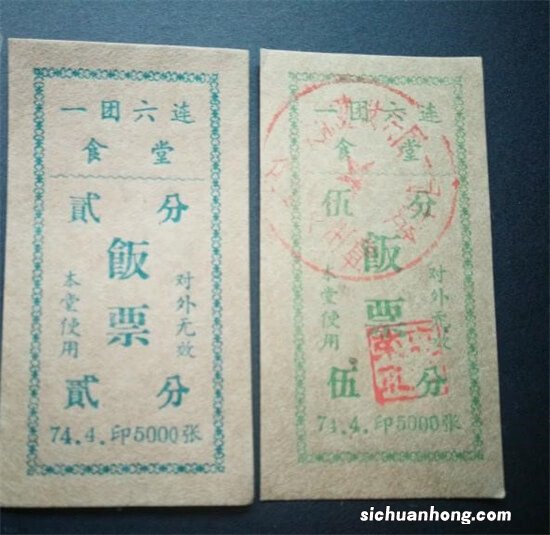 一团六连
食堂
贰分
飯票
本堂使用
对外无效
贰分
74.4.印5000张
一团六连
食堂
伍分
飯票
本堂使用
对外无效
伍分
74.4.印5000张
sichuanhong.com